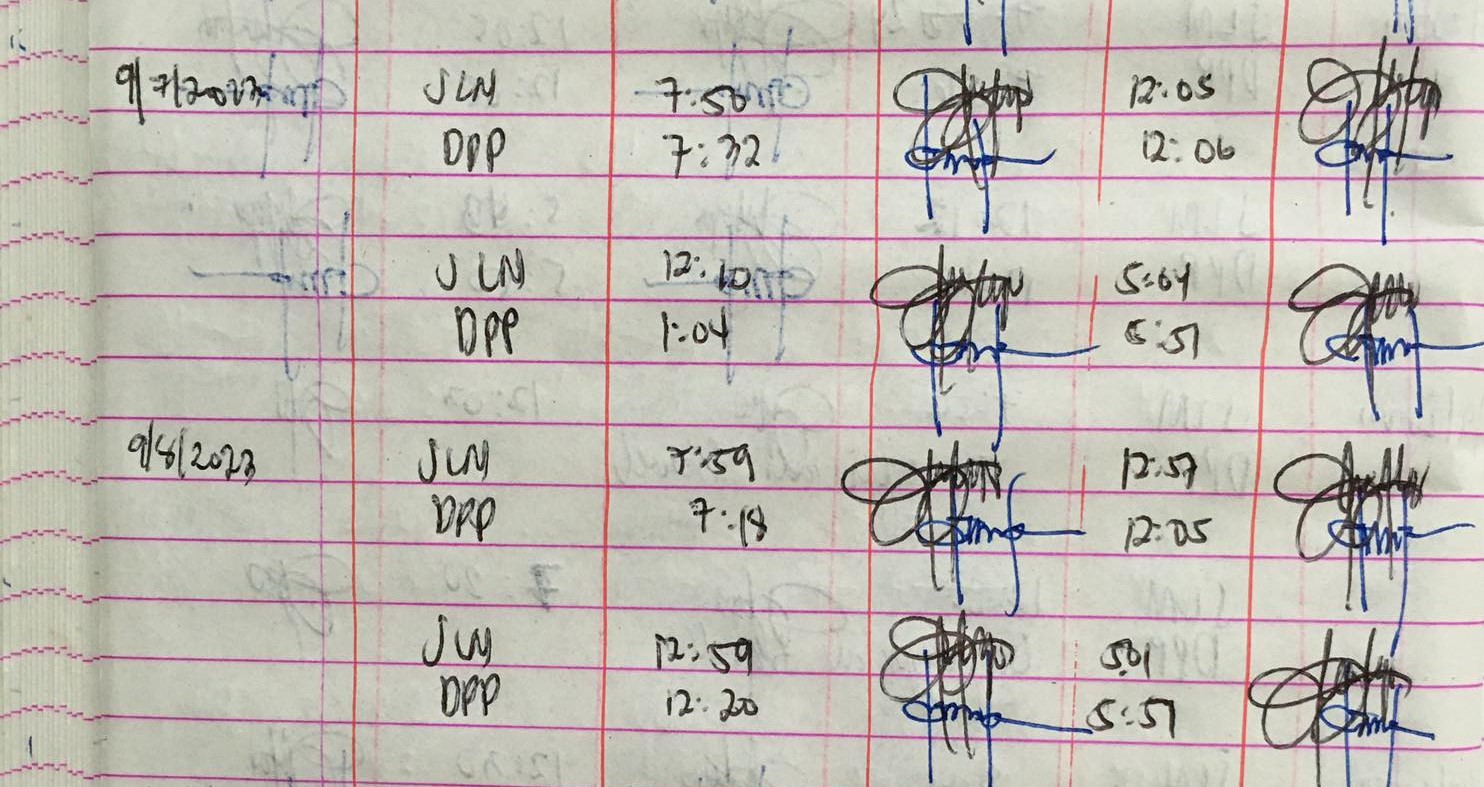 9/7/2023 JLN 7:50 12:05
DPP 7:32 12:06
JLN 12:10 5:04
DPP 1:04 5:51
9/8/2023 JLN 7:59 12:57
DPP 7:18 12:05
JLN 12:59 5:01
DPP 12:20 5:51